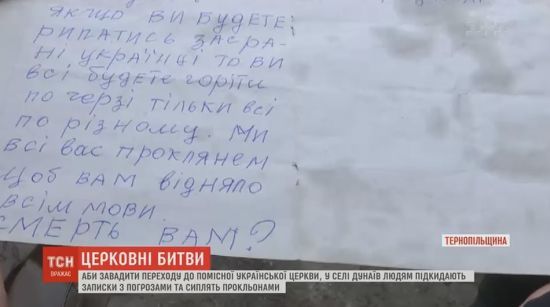 ЯКЩО ВИ БУДЕТЕ
РИПАТИСЬ ЗАСРА-
НІ УКРАЇНЦІ ТО ВИ
ВСІ БУДЕТЕ ГОРІТИ
ПО ЧЕРЗІ ТІЛЬКИ ВСІ
ПО РІЗНОМУ. МИ
ВСІ ВАС ПРОКЛЯНЕМ
ЩОБ ВАМ ВІДНЯЛО
ВСІМ МОВИ.
СМЕРТЬ ВАМ?
ТЕРНОПІЛЬЩИНА
ТСН
ВРАЖАЄ
ЦЕРКОВНІ БИТВИ
АБИ ЗАВАДИТИ ПЕРЕХОДУ ДО ПОМІСНОЇ УКРАЇНСЬКОЇ ЦЕРКВИ, У СЕЛІ ДУНАЇВ ЛЮДЯМ ПІДКИДАЮТЬ
ЗАПИСКИ З ПОГРОЗАМИ ТА СИПЛЯТЬ ПРОКЛЬОНАМИ